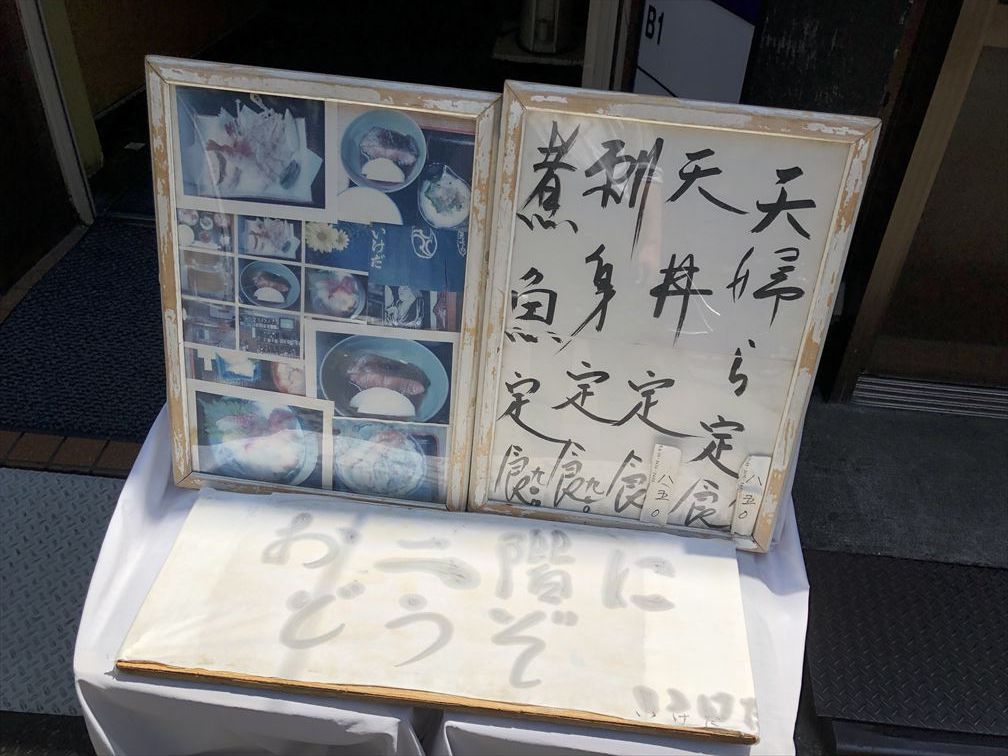 天ぷら定食 八五〇
天丼定食 八五〇
刺身定食 九〇〇
煮魚定食 九〇〇
いけだ
お二階に
どうぞ
いけだ
B1